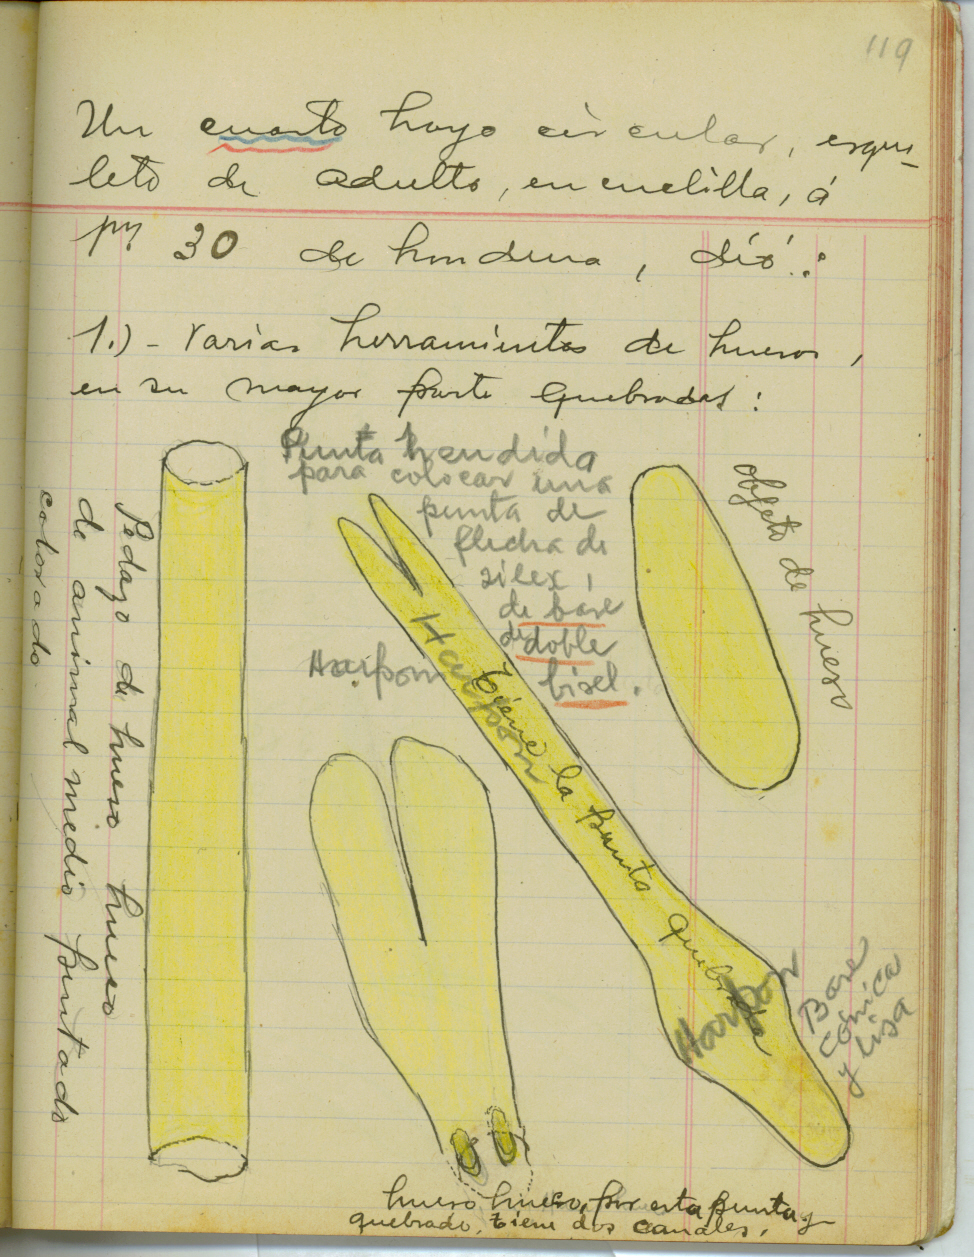 119
Un cuarto hoyo circular, esque-
leto de adulto, en cuclilla, á
m 30 de hondura, dió:
1.) - Varias herramientas de huesos,
en su mayor parte quebradas:
Punta hendida
para colocar una
punta de
flecha de
silex,
de base
de doble
bisel.
objeto de hueso
Pedazo de hueso hueco
de animal medio pintado
colorado
Harpon
Harpon
tiene la punta quebrada
Harpon
Base
cónica
y lisa
hueso hueco, por esta punta y
quebrado, tiene dos canales.